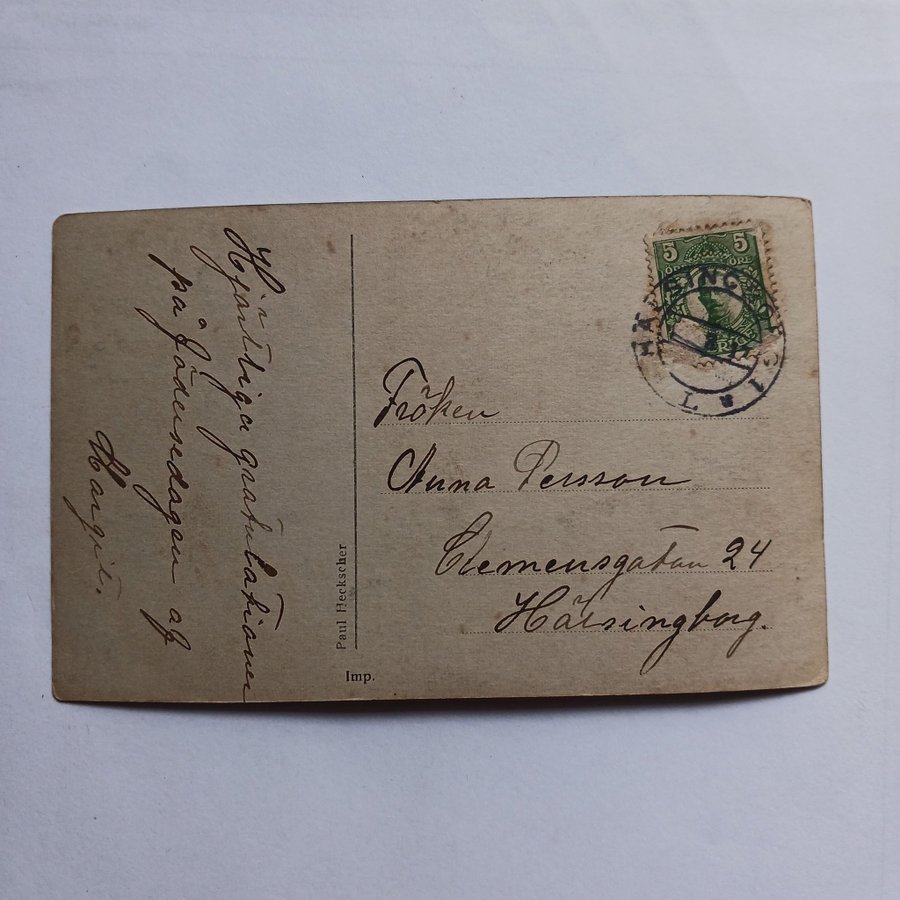 Hjärtliga gratulationer
på födensdagen af
Margit.
Paul Heckscher
Imp.
5 5
ÖRE
HÄLSINGBORG 1
Fröken
Anna Persson
Clemensgatan 24
Hälsingborg.